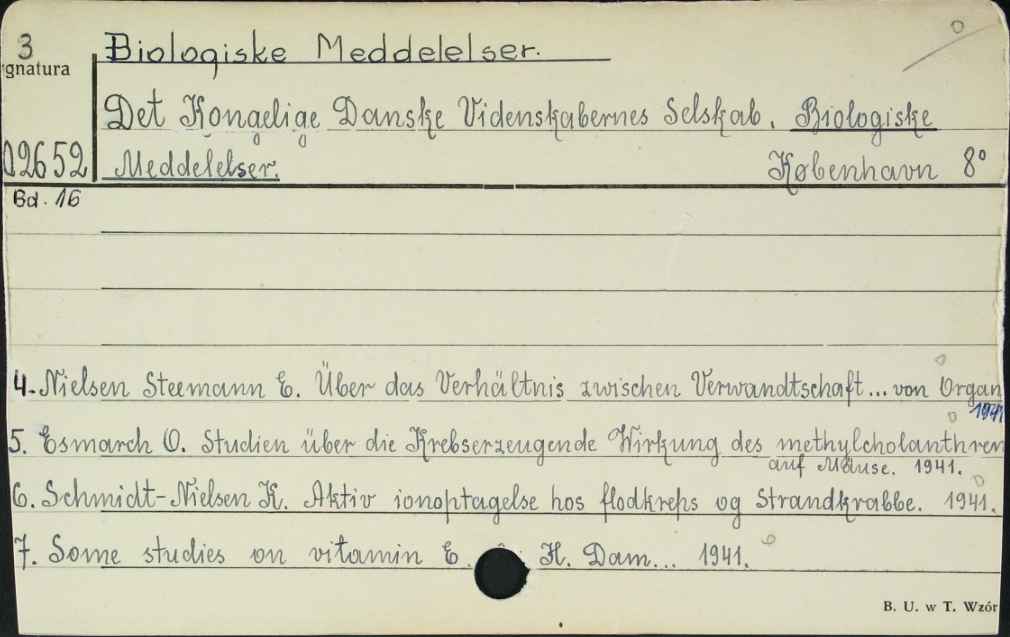 3
gnatura
Biologiske Meddelelser.
Det Kongelige Danske Videnskabernes Selskab. Biologiske
02652 Meddelelser. København 8°
Bd. 16
4. Nielsen Steemann E. Über das Verhältnis zwischen Verwandtschaft... von Organ
1941
5. Esmarch O. Studien über die Krebserzeugende Wirkung des methylcholanthren
auf Mäuse. 1941.
6. Schmidt-Nielsen K. Aktiv ionoptagelse hos flodkrebs og Strandkrabbe. 1941.
7. Some studies on vitamin E. H. Dam... 1941.
B. U. w T. Wzór